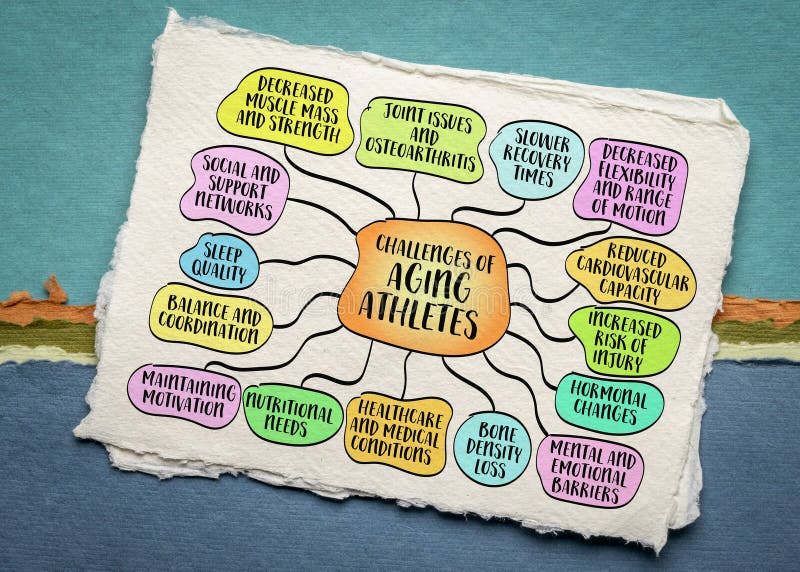 DECREASED
MUSCLE MASS
AND STRENGTH
JOINT ISSUES
AND
OSTEOARTHRITIS
SLOWER
RECOVERY
TIMES
DECREASED
FLEXIBILITY
AND RANGE
OF MOTION
SOCIAL AND
SUPPORT
NETWORKS
CHALLENGES OF
AGING
ATHLETES
REDUCED
CARDIOVASCULAR
CAPACITY
SLEEP
QUALITY
INCREASED
RISK OF
INJURY
BALANCE AND
COORDINATION
HORMONAL
CHANGES
MAINTAINING
MOTIVATION
NUTRITIONAL
NEEDS
HEALTHCARE
AND MEDICAL
CONDITIONS
BONE
DENSITY
LOSS
MENTAL AND
EMOTIONAL
BARRIERS